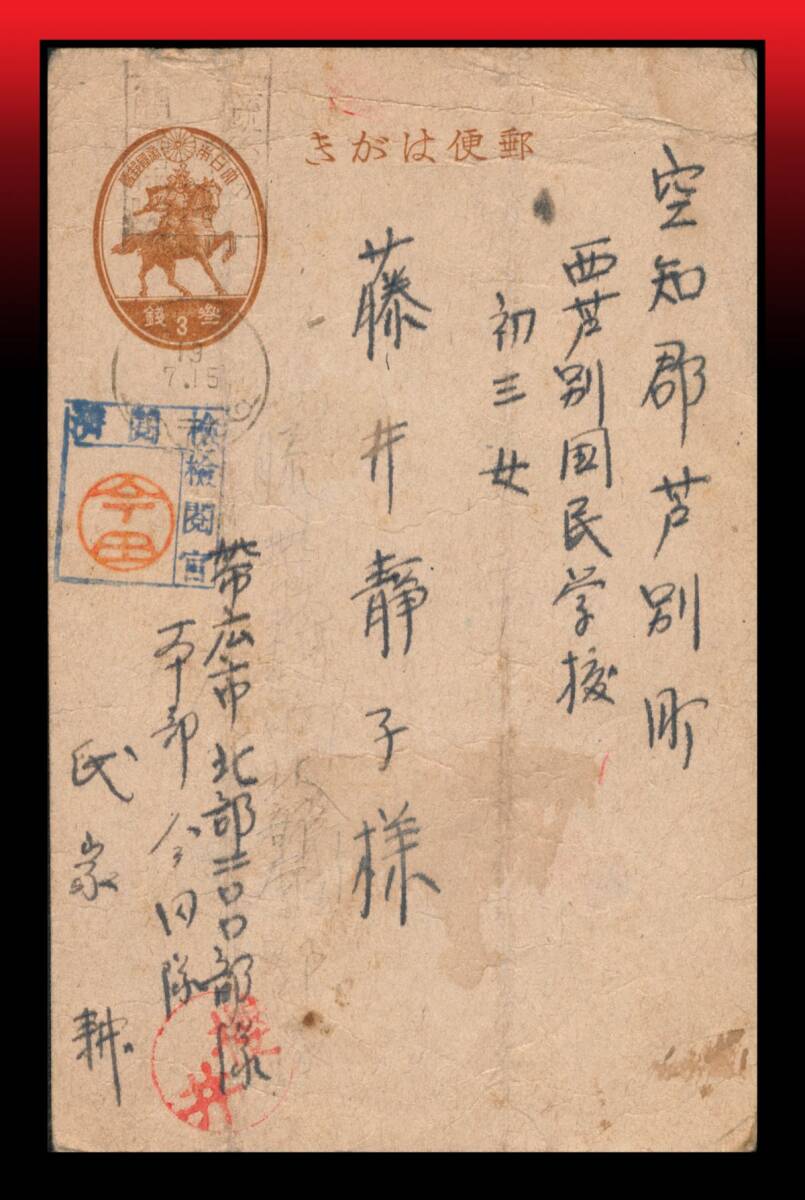 郵便はがき
空知郡芦別町
西芦別国民学校
初三女
藤井静子様
大日本帝國郵便
参3銭
19
7.15
検閲済
検閲官
今田
帯広市北部二〇〇部隊
本部今田隊
氏家耕
櫻井